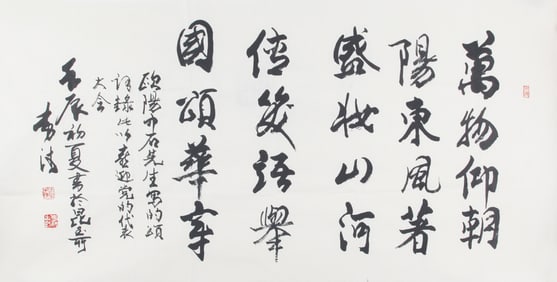 萬物仰朝
陽東風著
盛妝山河
倩笑語舉
國頌華章
歐陽中石先生寫的頌
詞錄此以喜迎党的代表
大会
壬辰初夏書於昆玉河